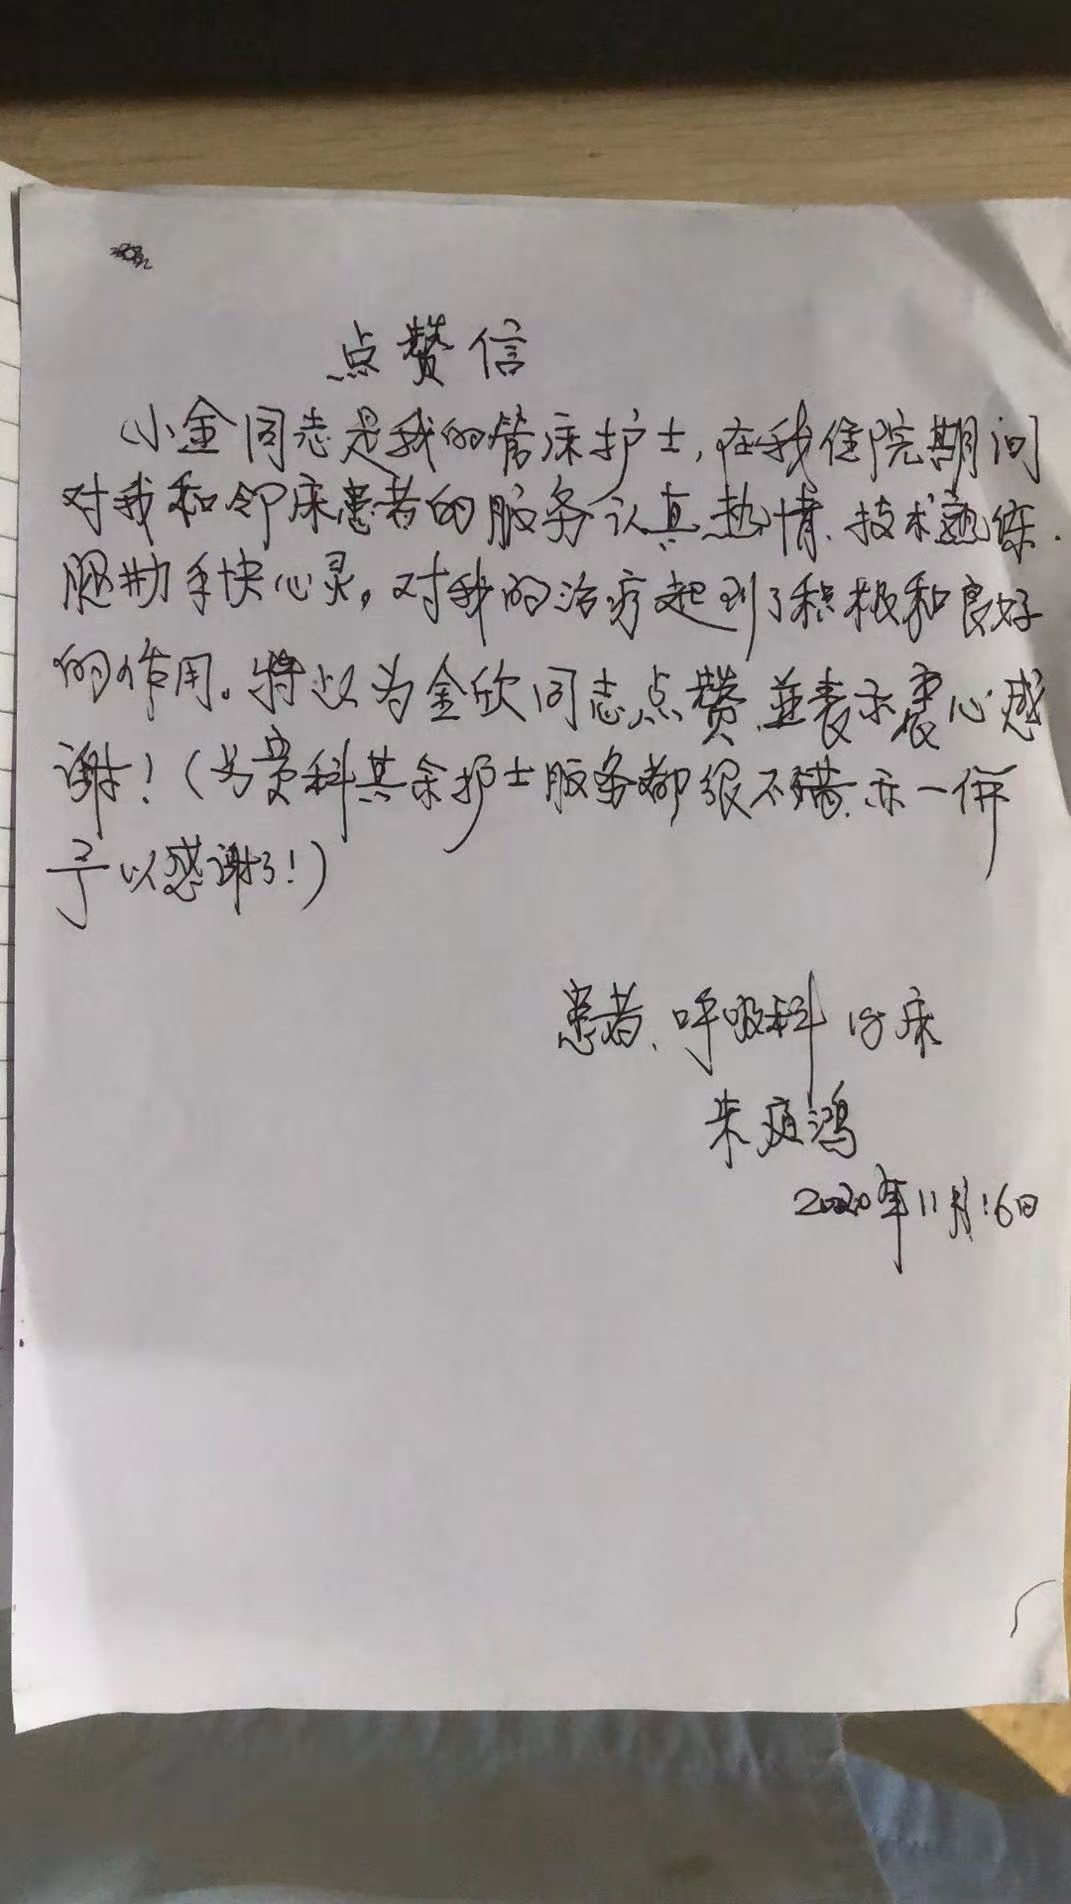 点赞信
小金同志是我的管床护士,在我住院期间
对我和邻床患者的服务认真热情、技术熟练.
腿勤手快心灵。对我的治疗起到了积极和良好
的作用。特以为金欣同志点赞,並表示衷心感
谢!(另贵科其余护士服务都很不错,亦一併
予以感谢了!)
患者、呼吸科 18床
朱庭鸿
2020年11月16日